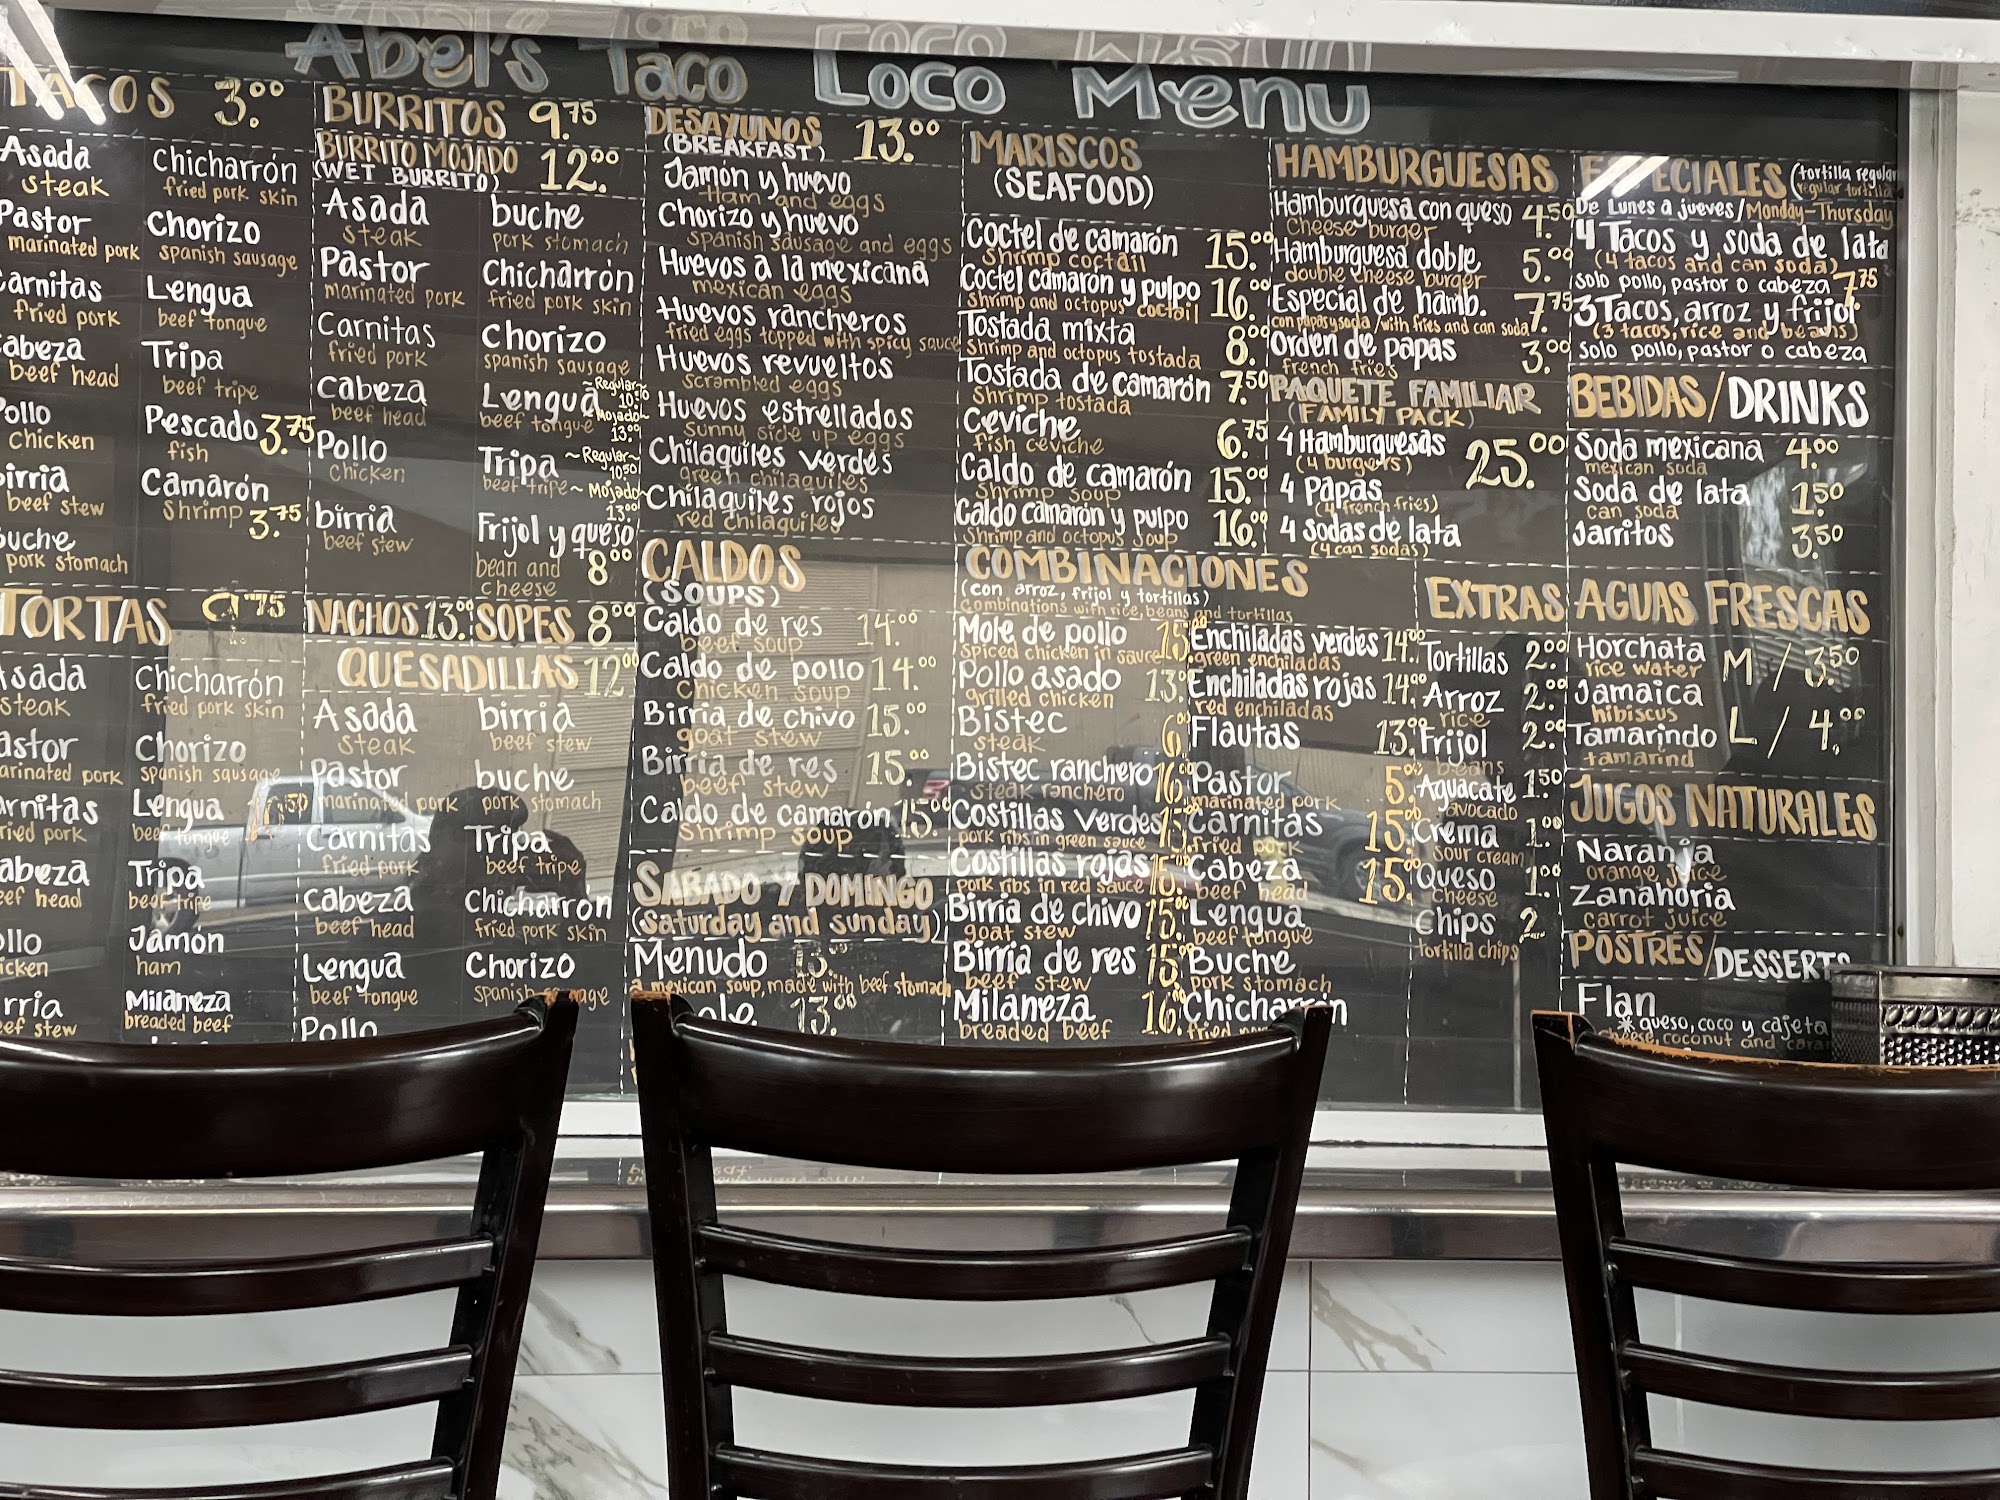 Abel's Taco Loco Menu
TACOS 3.00
Asada
steak
Pastor
marinated pork
carnitas
fried pork
cabeza
beef head
Pollo
chicken
birria
beef stew
buche
pork stomach
chicharrón
fried pork skin
Chorizo
spanish sausage
Lengua
beef tongue
Tripa
beef tripe
Pescado 3.75
fish
Camarón
shrimp 3.75
TORTAS 9.75
Asada
steak
astor
arinated pork
arnitas
ried pork
abeza
eef head
ollo
icken
rria
eef stew
Chicharrón
fried pork skin
Chorizo
spanish sausage
Lengua 10.50
beef tongue
Tripa
beef tripe
Jamón
ham
Milaneza
breaded beef
BURRITOS 9.75
BURRITO MOJADO 12.00
(WET BURRITO)
Asada
steak
Pastor
marinated pork
Carnitas
fried pork
Cabeza
beef head
Pollo
chicken
birria
beef stew
buche
pork stomach
Chicharrón
fried pork skin
Chorizo
spanish sausage
Lengua ~Regular~ 10.50
beef tongue Mojado~ 13.00
Tripa ~Regular~ 10.50
beef tripe ~Mojado~ 13.00
Frijol y queso
bean and 8.00
cheese
NACHOS 13.00 SOPES 8.00
QUESADILLAS 12.00
Asada
steak
Pastor
marinated pork
Carnitas
fried pork
Cabeza
beef head
Lengua
beef tongue
Pollo
birria
beef stew
buche
pork stomach
Tripa
beef tripe
Chicharrón
fried pork skin
Chorizo
spanish sausage
DESAYUNOS 13.00
(BREAKFAST)
Jamón y huevo
Ham and eggs
Chorizo y huevo
spanish sausage and eggs
Huevos a la mexicana
mexican eggs
Huevos rancheros
fried eggs topped with spicy sauce
Huevos revueltos
scrambled eggs
Huevos estrellados
sunny side up eggs
Chilaquiles verdes
green chilaquiles
Chilaquiles rojos
red chilaquiles
CALDOS
(SOUPS)
Caldo de res 14.00
beef soup
Caldo de pollo 14.00
chicken soup
Birria de chivo 15.00
goat stew
Birria de res 15.00
beef stew
Caldo de camarón 15.00
shrimp soup
SABADO Y DOMINGO
(Saturday and sunday)
Menudo 13.00
a mexican soup, made with beef stomach
ole 13.00
MARISCOS
(SEAFOOD)
Coctel de camarón 15.00
shrimp coctail
Coctel camarón y pulpo 16.00
shrimp and octopus coctail
Tostada mixta 8.00
shrimp and octopus tostada
Tostada de camarón 7.50
shrimp tostada
Ceviche 6.75
fish ceviche
Caldo de camarón 15.00
shrimp soup
Caldo camarón y pulpo 16.00
shrimp and octopus soup
COMBINACIONES
(con arroz, frijol y tortillas)
combinations with rice, beans and tortillas
Mole de pollo 15.00
spiced chicken in sauce
Pollo asado 13.00
grilled chicken
Bistec
steak
Bistec ranchero 16.00
steak ranchero
Costillas verdes 15.00
pork ribs in green sauce
Costillas rojas 15.00
pork ribs in red sauce
Birria de chivo 15.00
goat stew
Birria de res 15.00
beef stew
Milaneza 16.00
breaded beef
Enchiladas verdes 14.00
green enchiladas
Enchiladas rojas 14.00
red enchiladas
Flautas 13.00
Pastor
marinated pork
Carnitas 15.00
fried pork
Cabeza 15.00
beef head
Lengua
beef tongue
Buche
pork stomach
Chicharrón
fried
HAMBURGUESAS
Hamburguesa con queso 4.50
Cheese burger
Hamburguesa doble 5.00
double cheese burger
Especial de hamb. 7.75
con papas y soda/with fries and can soda
Orden de papas 3.00
french fries
PAQUETE FAMILIAR
(FAMILY PACK)
4 Hamburguesas 25.00
(4 burgers)
4 Papas
(4 french fries)
4 sodas de lata
(4 can sodas)
EXTRAS
Tortillas 2.00
Arroz 2.00
rice
Frijol 2.00
beans
Aguacate 1.50
avocado
Crema 1.00
sour cream
Queso 1.00
cheese
Chips 2.
tortilla chips
ESPECIALES (tortilla regular
regular tortilla
De Lunes a jueves/Monday-Thursday
4 Tacos y soda de lata
(4 tacos and can soda)
solo pollo, pastor o cabeza 7.75
3 Tacos, arroz y frijol
(3 tacos, rice and beans)
solo pollo, pastor o cabeza
BEBIDAS/DRINKS
Soda mexicana 4.00
mexican soda
Soda de lata 1.50
can soda
Jarritos 3.50
AGUAS FRESCAS
Horchata
rice water M / 3.50
Jamaica
hibiscus
Tamarindo L / 4.00
tamarind
JUGOS NATURALES
Naranja
orange juice
Zanahoria
carrot juice
POSTRES/DESSERTS
Flan
*queso, coco y cajeta
cheese, coconut and cara